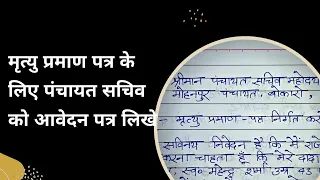 मृत्यु प्रमाण पत्र के
लिए पंचायत सचिव
को आवेदन पत्र लिखे
श्रीमान पंचायत सचिव महोदय
मोहनपुर पंचायत, बोकारो,
:- मृत्यु प्रमाण-पत्र निर्गत कर
सविनय निवेदन है कि मैं राजे
करना चाहता हूँ कि मेरे दादा
स्व० महेन्द्र शर्मा उम्र 45